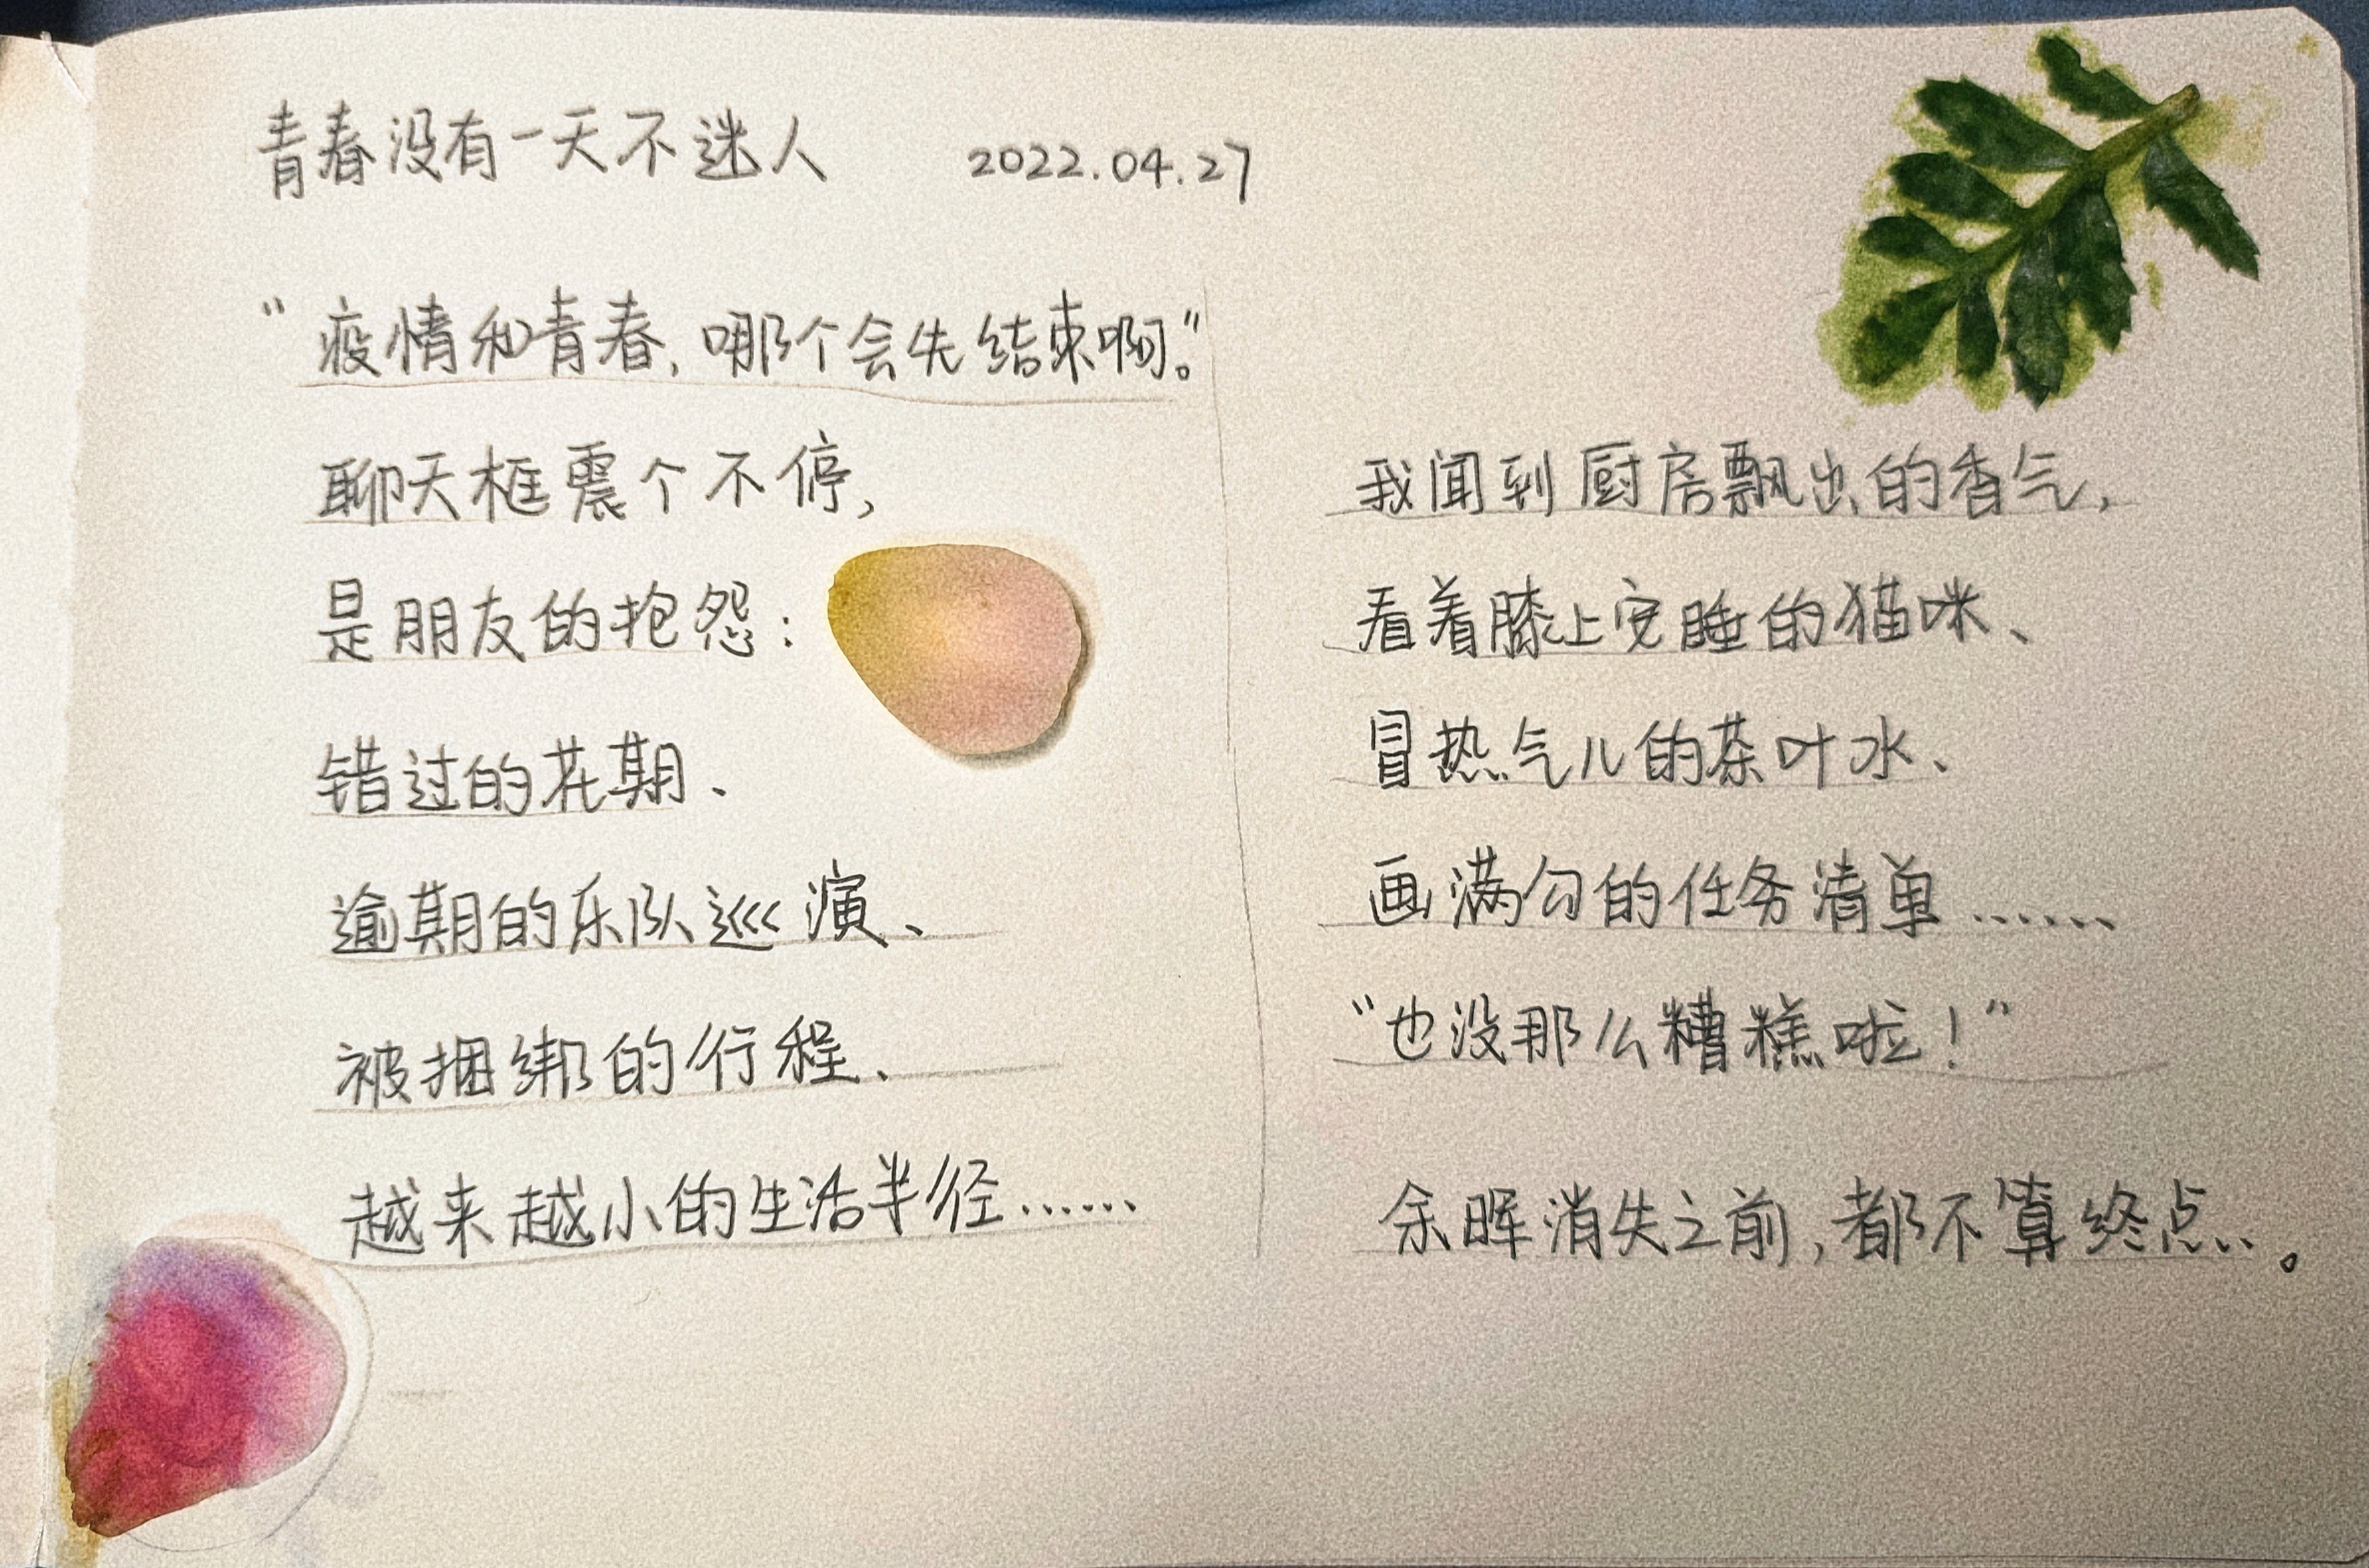 青春没有一天不迷人 2022.04.27
“疫情和青春，哪个会先结束啊。”
聊天框震个不停，
是朋友的抱怨：
错过的花期、
逾期的乐队巡演、
被捆绑的行程、
越来越小的生活半径……
我闻到厨房飘出的香气，
看着膝上安睡的猫咪、
冒热气儿的茶叶水、
画满勾的任务清单……
“也没那么糟糕啦！”
余晖消失之前，都不算终点。